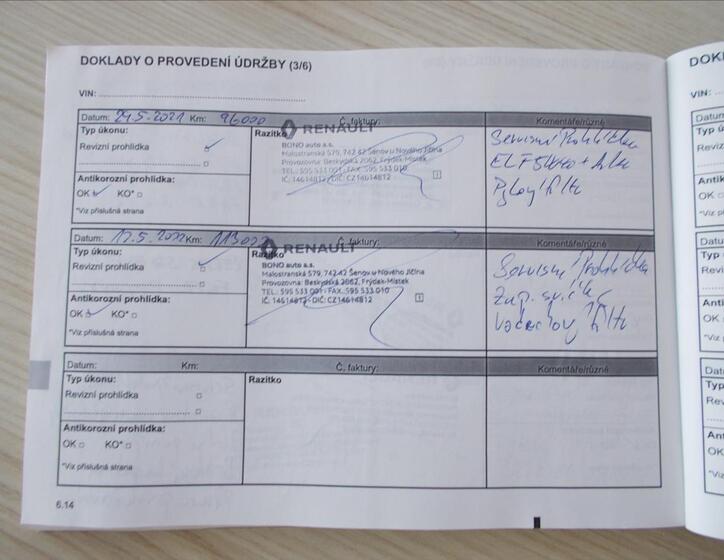 DOKLADY O PROVEDENÍ ÚDRŽBY (3/6)
DOKL
VIN:
VIN:
Datum: 24.5.2021 Km: 96000 Č. faktury: Komentáře/různé
Typ úkonu:
Revizní prohlídka
Razítko
RENAULT
BONO auto a.s.
Malostranská 579, 742 42 Šenov u Nového Jičína
Provozovna: Beskydská 2062, Frýdek-Místek
TEL.: 595 533 001 - FAX: 595 533 010
IČ: 14614812 - DIČ: CZ14614812
1
Servisní Prohlídka
ELF 5W40 +
Pylový filtr
Antikorozní prohlídka:
OK KO*
*Viz příslušná strana
Datum: 17.5.2022 Km: Č. faktury: Komentáře/různé
Typ úkonu:
Revizní prohlídka
Razítko
RENAULT
BONO auto a.s.
Malostranská 579, 742 42 Šenov u Nového Jičína
Provozovna: Beskydská 2062, Frýdek-Místek
TEL.: 595 533 001 - FAX: 595 533 010
IČ: 14614812 - DIČ: CZ14614812
1
Servisní Prohlídka
Zap. svíčky
Vzduchový filtr
Antikorozní prohlídka:
OK KO*
*Viz příslušná strana
Datum: Km: Č. faktury: Komentáře/různé
Typ úkonu:
Revizní prohlídka
Razítko
Antikorozní prohlídka:
OK KO*
*Viz příslušná strana
6.14